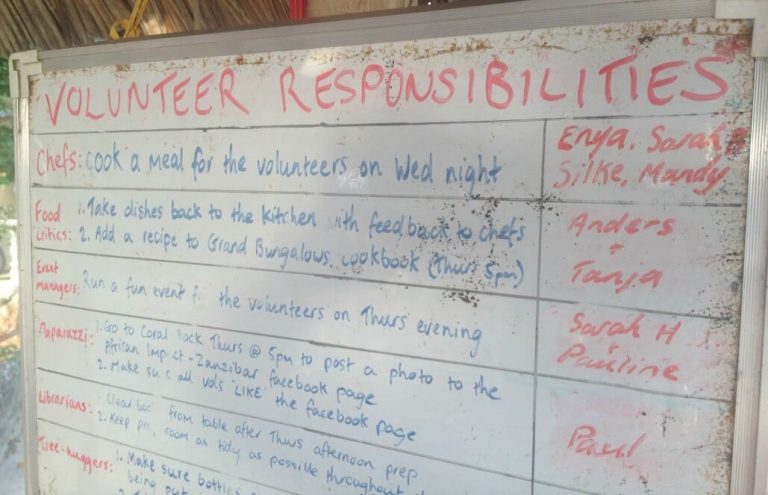 VOLUNTEER RESPONSIBILITIES
Chefs: Cook a meal for the volunteers on Wed night
Enya, Sarah
Silke, Mandy
Food critics:
1. Take dishes back to the kitchen ith feedback to chefs
2. Add a recipe to Grand Bungalows cookbook (Thurs 5pm)
Anders
+
Tanja
Event managers:
Run a fun event f the volunteers on Thurs evening
Sarah H
+
Pauline
Paparazzi:
1. Go to Coral ock Thurs @ 5pm to post a photo to the
frican Imp ct - Zanzibar facebook page
2. Make su e all vols 'LIKE' the facebook page
Paul
Librarians:
Clear from table after Thurs afternoon prep
2. Keep room as tidy as possible throughout
Tree-huggers:
1. Make sure
being put